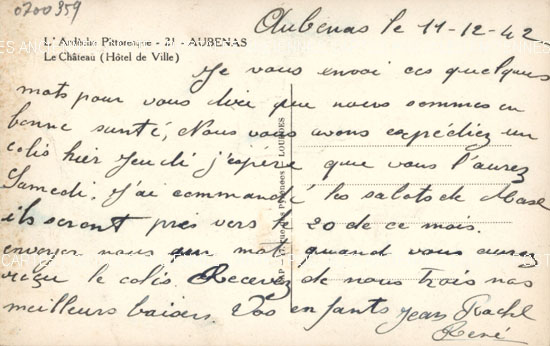 0700959
Aubenas le 11-12-42
L'Ardèche Pittoresque - 21 - AUBENAS
Le Château (Hôtel de Ville)
Je vous envoi ces quelques
mots pour vous dire que nous sommes en
bonne santé, Nous vous avons expédiez un
colis hier Jeudi j'espére que vous l'aurez
Samedi. J'ai commandé les sabots de
ils seront près vers le 20 de ce mois.
envoyer nous un mot quand vous aurez
reçu le colis. Recevez de nous trois nos
meilleurs baisers Vos enfants Jean Rachel
René
LOURDES